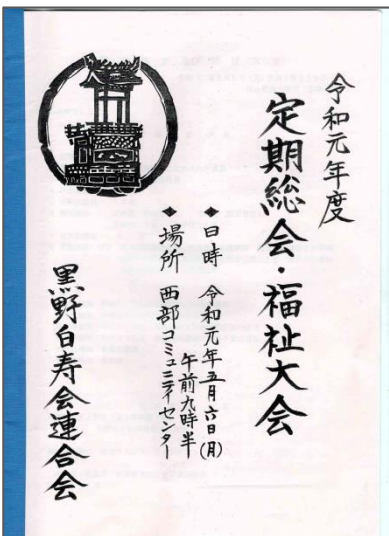 令和元年度
定期総会・福祉大会
◆日時 令和元年五月六日(月)
午前九時半
◆場所 西部コミュニティセンター
黒野白寿会連合会